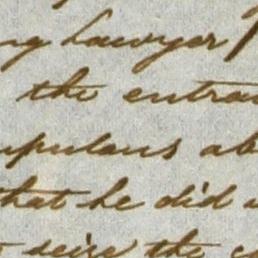 ng Lawyer
the entra
pulous ab
that he did
seize the c